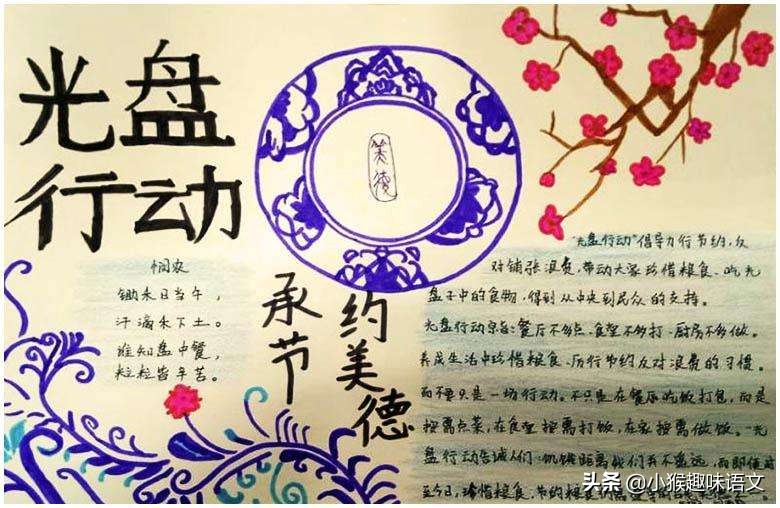 光盘
行动
美德
承节
约美德
悯农
锄禾日当午,
汗滴禾下土。
谁知盘中餐,
粒粒皆辛苦。
"光盘行动"倡导力行节约,反
对铺张浪费,带动大家珍惜粮食、吃光
盘子中的食物,得到从中央到民众的支持。
光盘行动宗旨:餐厅不多点、食堂不多打、厨房不多做。
养成生活中珍惜粮食、厉行节约反对浪费的习惯。
而不要只是一场行动。不只是在餐厅吃饭打包,而是
按需点菜,在食堂按需打饭,在家按需做饭。"光
盘行动告诫人们:饥饿距离我们并不遥远,而即便时
至今日,珍惜粮食,节约粮食仍需
头条 @小猴趣味语文